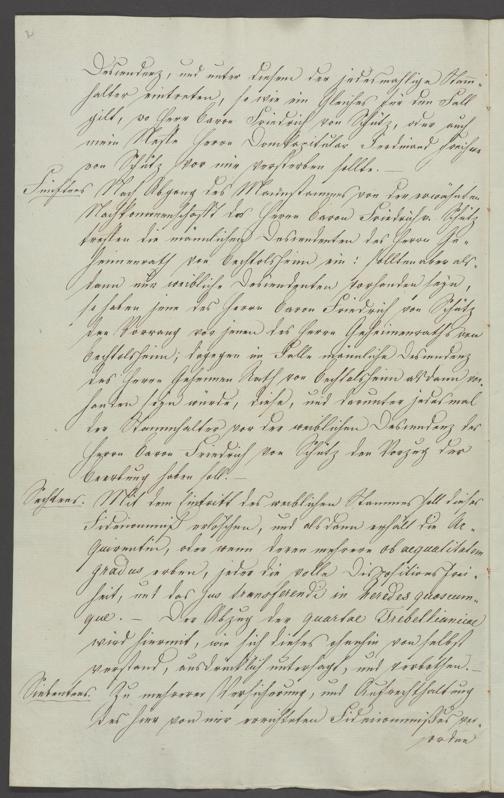 2
Descendenz, und unter diesem der jedesmahlige Stam-
halter eintreten, so wie ein Gleiches für den Fall
gilt, wo Herr Baron Friedrich von Schütz, oder auch
mein Neffe Herr Domkapitular Ferdinand Freiherr
von Schütz vor mir versterben sollte. —
Fünftens Nach Abgang des Mannsstammes von der erwähnten
Nachkommenschafft des Herrn Baron Friedrich v. Schütz
tretten die männlichen Descendenten des Herrn Ge-
heimenrath von Bechtolsheim ein: sollten aber als-
dann nur weibliche Descendenten vorhanden seyn,
so haben jene des Herrn Baron Friedrich von Schütz
den Vorrang vor jenen des Herrn Geheimenraths von
Bechtolsheim; dagegen im Falle männliche Descendenz
des Herrn Geheimen Rath von Bechtolsheim alsdann vor-
handen seyn würde, diese, und darunter jedesmal
der Stammhalter vor der weiblichen Descendenz des
Herrn Baron Friedrich von Schütz den Vorzug der
Beerbung haben soll. —
Sechtens. Mit dem Eintritt des weiblichen Stammes soll dieses
Fideicommiß erlöschen, und alsdann erhält die Ac-
quirentin, oder wenn deren mehrere ob aequalitatem
gradus erben, jeder die volle Dispositionsfrei-
heit, und das Jus transferendi in heredes quoscum-
que. — Der Abzug der quartae Trebellianicae
wird hiermit, wie sich dieses ohnehin von selbst
verstand, ausdrücklich untersagt, und verbothen. —
Siebentens. Zu mehrerer Versicherung, und Aufrechthaltung
des hier von mir errichteten Fideicommißes ver-
ordne